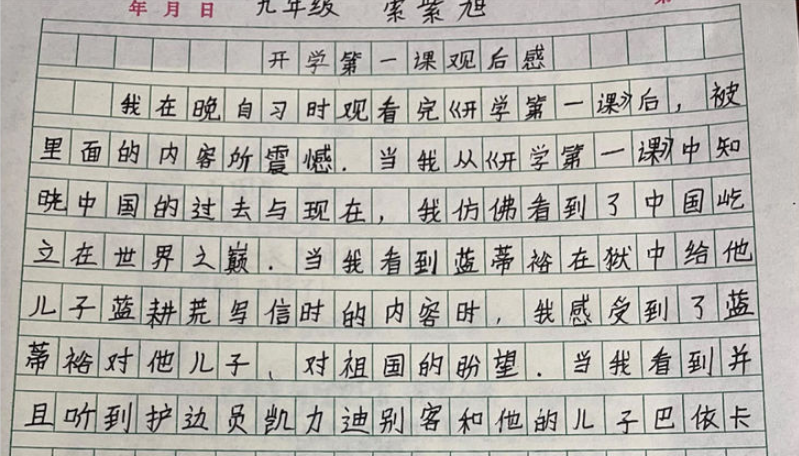 年 月 日 九年级 索紫旭
开学第一课观后感
我在晚自习时观看完《开学第一课》后，被
里面的内容所震憾．当我从《开学第一课》中知
晓中国的过去与现在，我仿佛看到了中国屹
立在世界之巅．当我看到蓝蒂裕在狱中给他
儿子蓝耕荒写信时的内容时，我感受到了蓝
蒂裕对他儿子、对祖国的盼望．当我看到并
且听到护边员凯力迪别客和他的儿子巴依卡